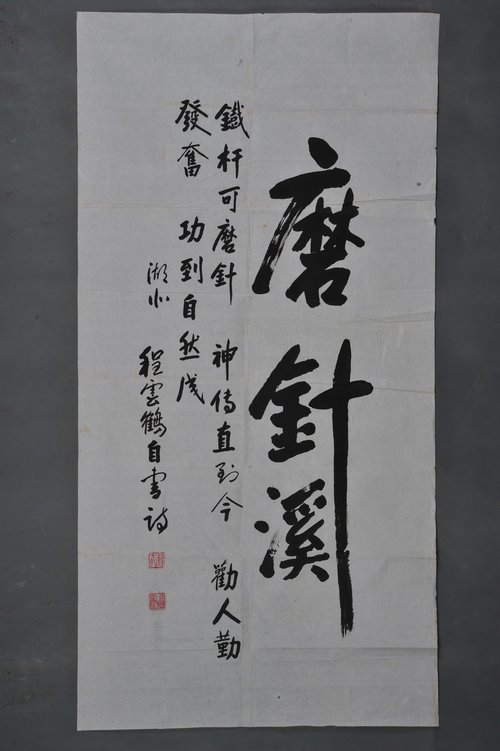 磨針溪
鐵杆可磨針 神傳直到今 勸人勤
發奮 功到自然成
湖北 程雲鶴自書詩